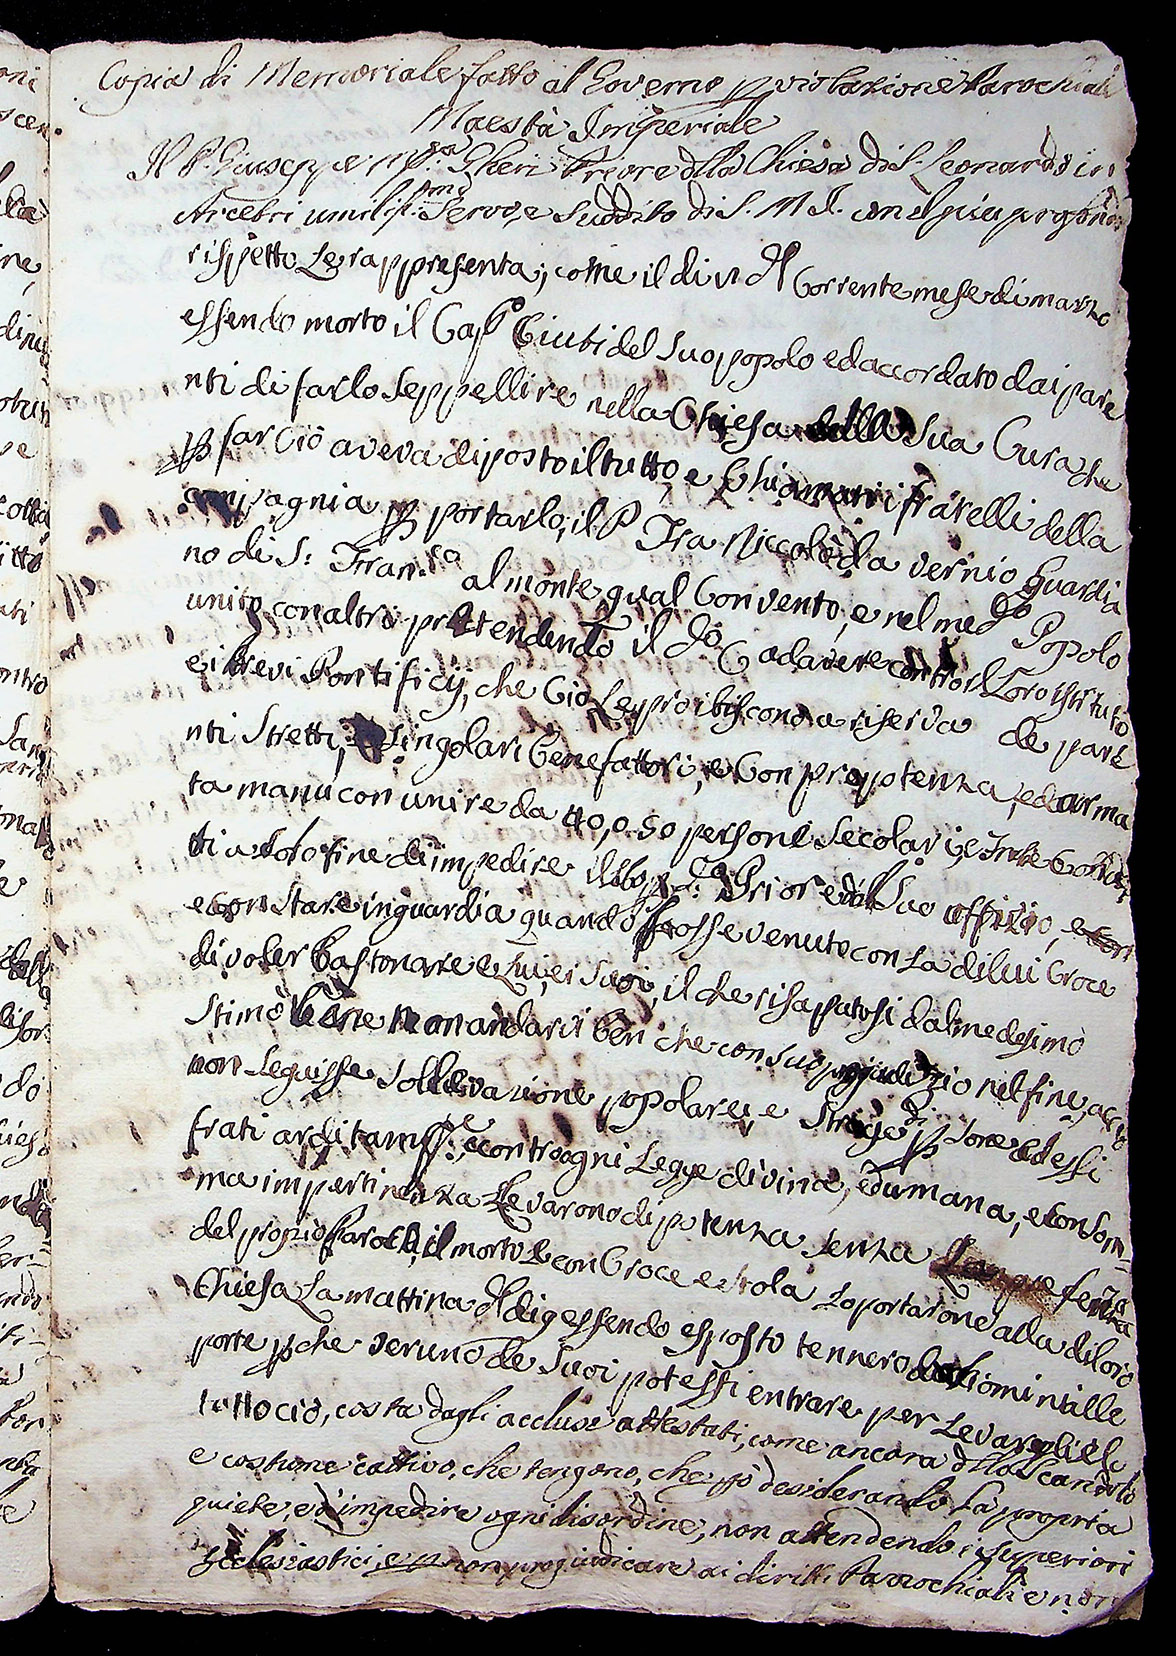 Copia di Memoriale fatto al Governo p violazione Parochiale
Maestà Imperiale
Il P. Giuseppe Ma Gheri Priore dlla Chiesa di S. Leonardo in
Arcetri umiliss.mo Servo, e Suddito di S. M. I. con il piu profondo
rispetto Le rappresenta, come il di vi dl Corrente mese di marzo
essendo morto il Capo Giuti del Suo popolo ed accordato dai pare
nti di farlo Seppellire nella Chiesa della Sua Cura che
p far Ciò aveva diposto il tutto, e Chiamati i fratelli della
compagnia p portarlo, il P Fra Niccolò da Vernio Guardia
no di S: Fran.co al monte qual Convento, è nel med.mo Popolo
unito con altri pretendendo il do Cadavere contro il Loro istituto
e i brevi Pontificij, che Ciò Le proibiscono a riserva de pare
nti Stretti, e Singolari Benefattori, e Con prepotenza, ed arma
ta manu con unire da 40, o 50 persone Secolari, e Frati
ti a solo fine d'impedire il Priore dal Suo uffizio, e
e con Stare in guardia quando fosse venuto con La di lui Croce
di voler bastonare e Lui, e i Suoi, il che risaputosi dal medesimo
Stimò bene non andarci ben che con suo pregiudizio nel fine, acciò
non Seguisse Sollevazione popolare, e Strage di psone ed essi
frati arditamte, e contro ogni Legge divina, ed umana, e con Som
ma impertinenza Levarono di potenza Senza
del proprio Paroco, il morto e con Croce e Stola Lo portarono alla di loro
Chiesa La mattina dl di 9 essendo esposto tennero uomini alle
porte p che veruno de Suoi potessi entrare per Levarglielo
tutto ciò, costa dagli acclusi attestati, come ancora dllo Scandolo
e costume cattivo, che tengono, che desiderando La propria
quiete, ed impedire ogni disordine, non attendendo i Superiori
Ecclesiastici, e p non progiudicare ai diritti Parrochiali e non